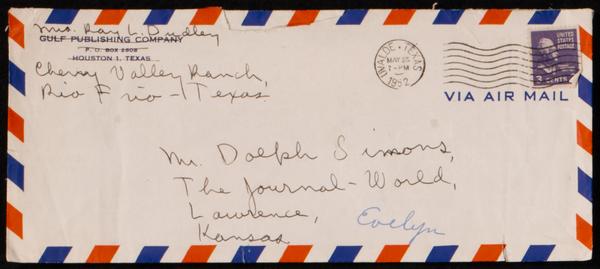 Mrs. Ray L. Dudley
GULF PUBLISHING COMPANY
P. O. BOX 2608
HOUSTON 1, TEXAS
Cherry Valley Ranch,
Rio Frio - Texas
UVALDE, TEXAS
MAY 25
7 - PM
1952
UNITED
STATES
POSTAGE
3 CENTS
VIA AIR MAIL
Mr. Dolph Simons,
The Journal-World,
Lawrence,
Kansas
Evelyn